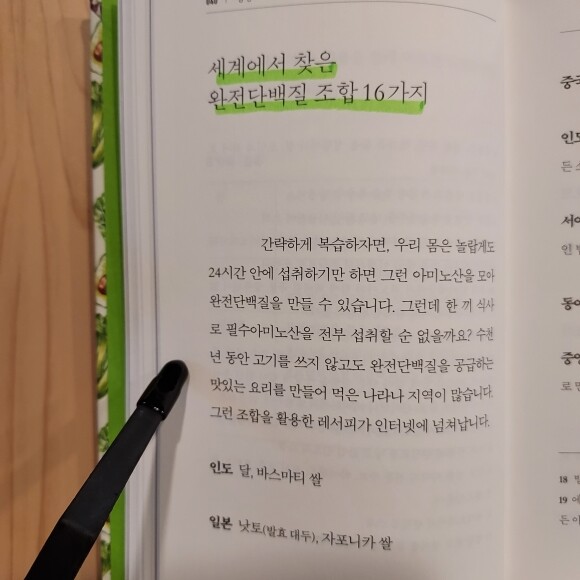 세계에서 찾은
완전단백질 조합 16가지
간략하게 복습하자면, 우리 몸은 놀랍게도
24시간 안에 섭취하기만 하면 그런 아미노산을 모아
완전단백질을 만들 수 있습니다. 그런데 한 끼 식사
로 필수아미노산을 전부 섭취할 순 없을까요? 수천
년 동안 고기를 쓰지 않고도 완전단백질을 공급하는
맛있는 요리를 만들어 먹은 나라나 지역이 많습니다.
그런 조합을 활용한 레서피가 인터넷에 넘쳐납니다.
인도 달, 바스마티 쌀
일본 낫토(발효 대두), 자포니카 쌀
18
19